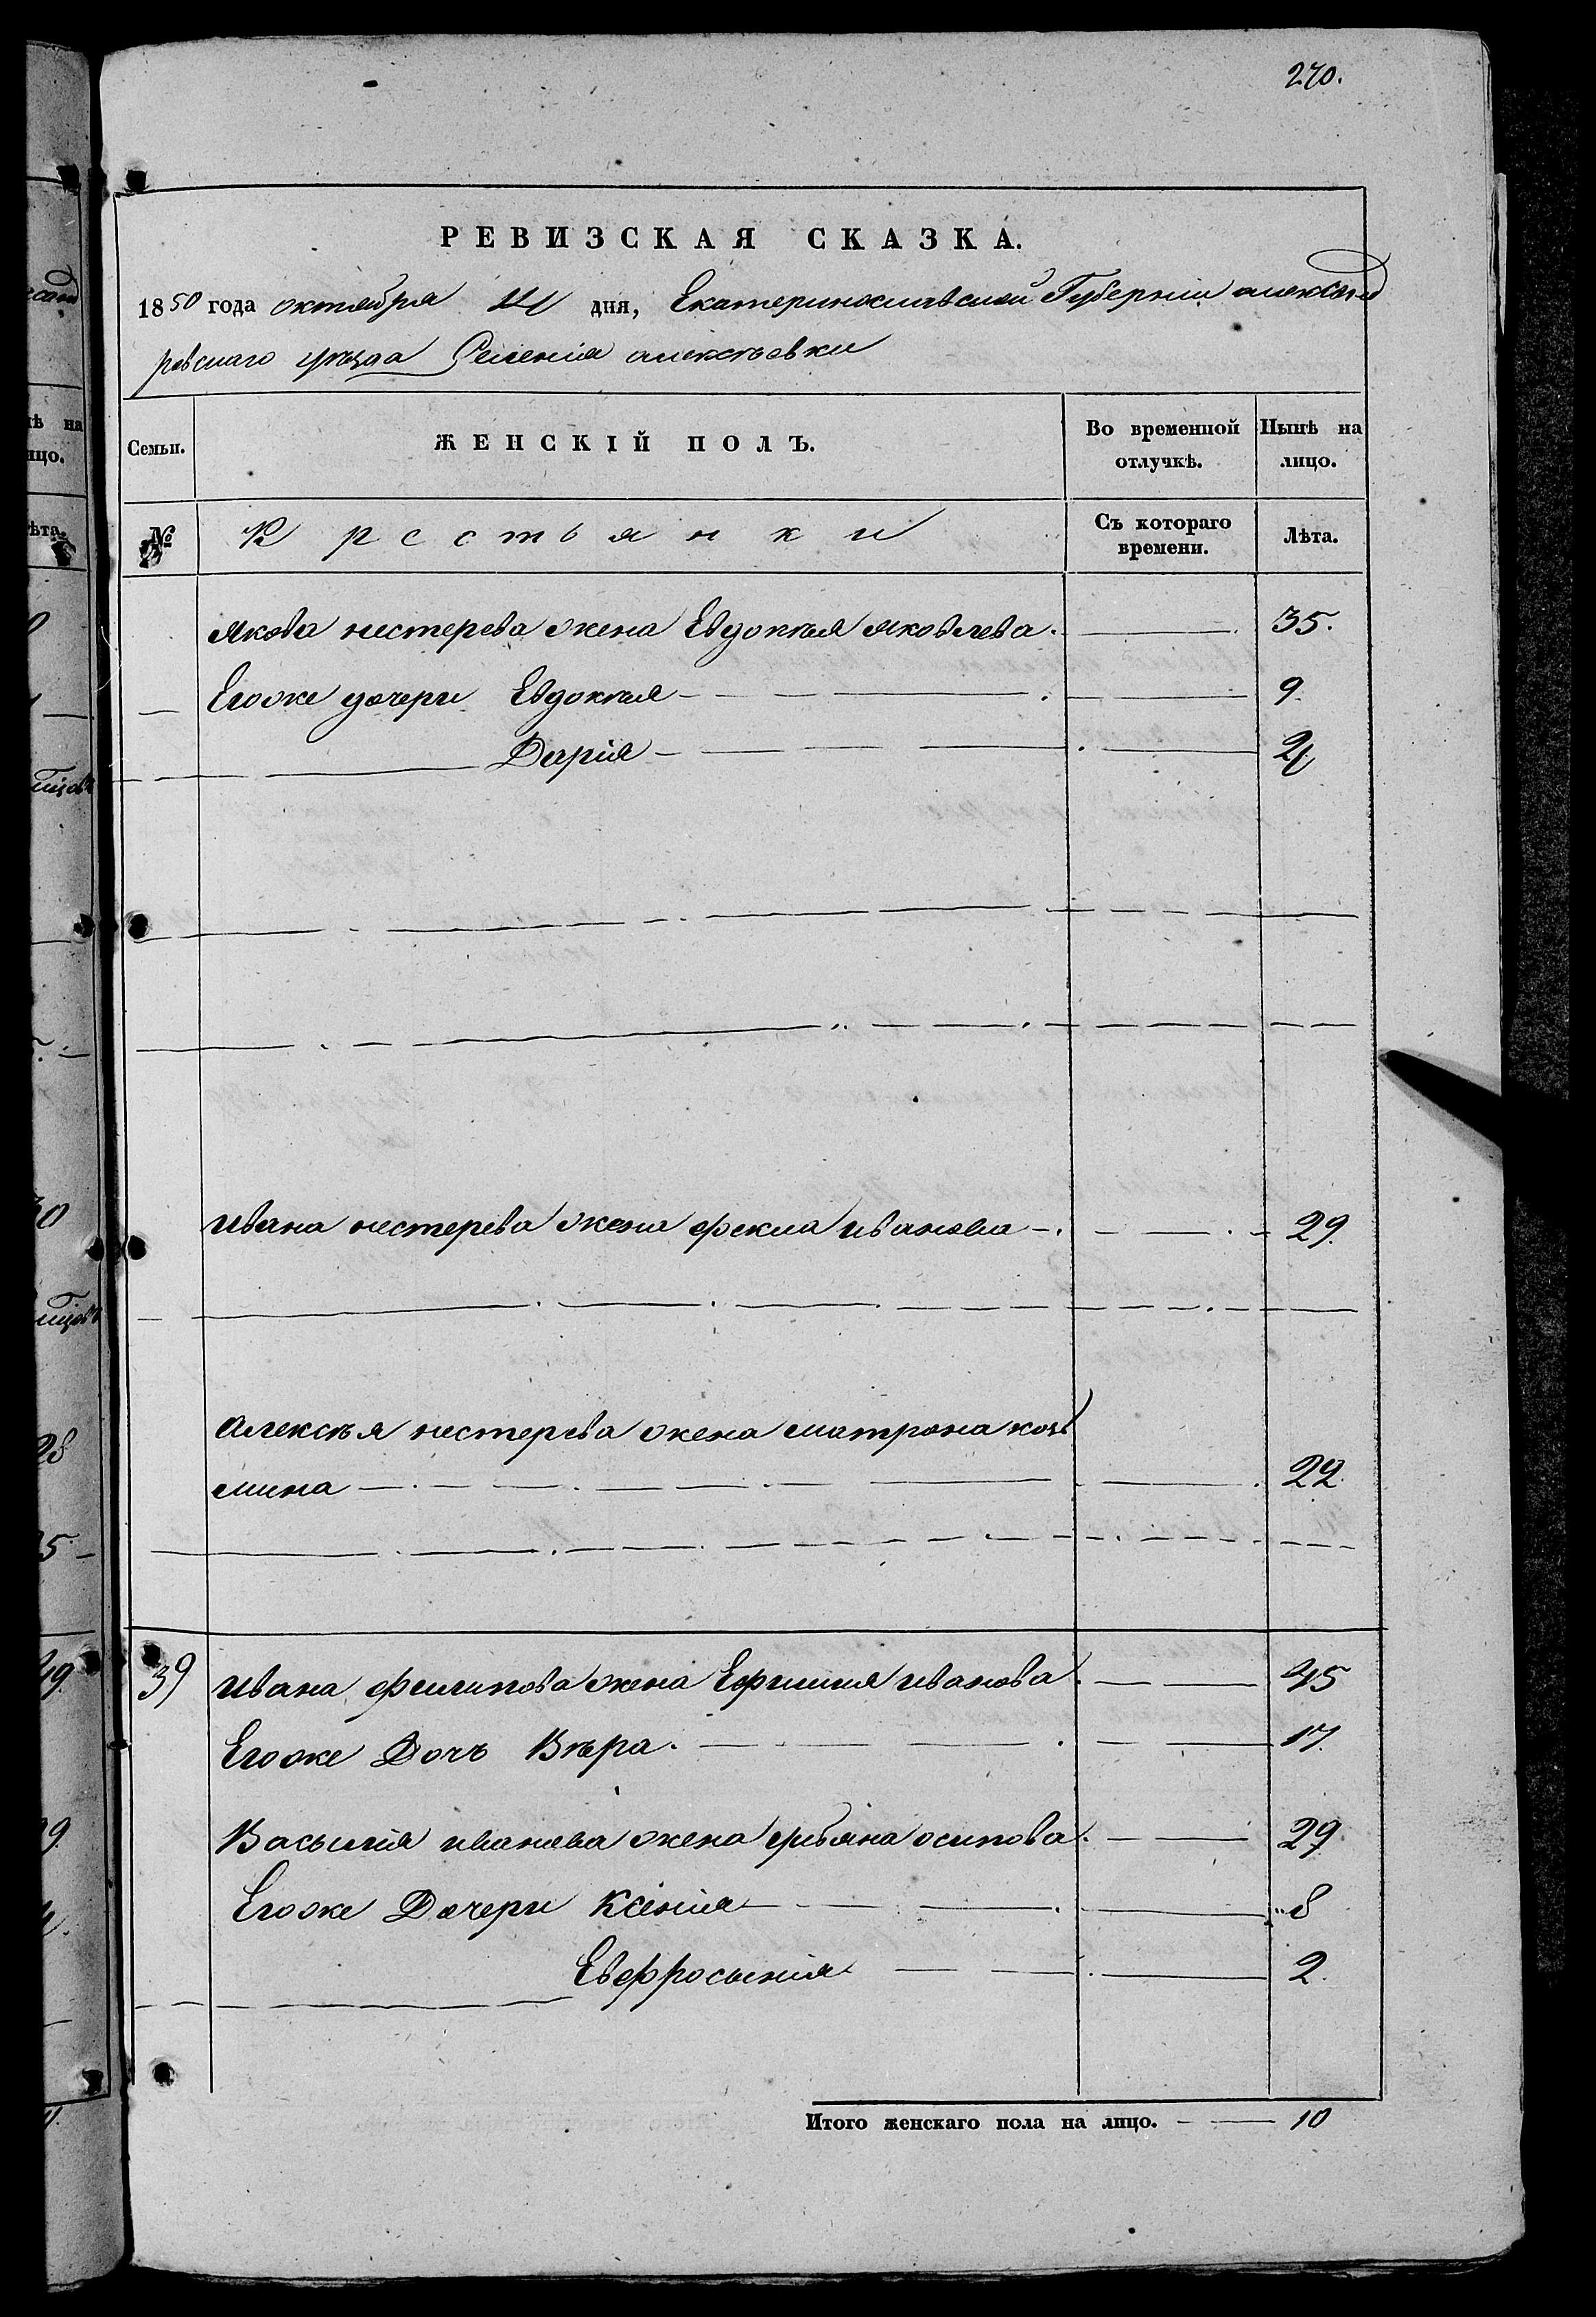 270.
РЕВИЗСКАЯ СКАЗКА.
1850 года октября дня, Екатеринославской Губернии александ
ровскаго уѣзда Селенія алексѣевки
Семьи. ЖЕНСКІЙ ПОЛЪ. Во временной отлучкѣ. Нынѣ на лицо.
№ Крестьянки Съ котораго времени. Лѣта.
Якова нестерева жена Евдокѣя яковлева. 35.
Егоже дочери Евдокѣя 9.
Дарія 4
ивана нестерева жена фекла иванова 29.
Алексѣя нестерева жена матрона козь
мина 22.
39 ивана филипова жена Ефимия иванова 45
Егоже Дочь Вѣра. 17.
Васылія иванова жена улья́на осипова. 29
Егоже Дочери Ксінія 8
Евфросынія 2.
Итого женскаго пола на лицо. 10